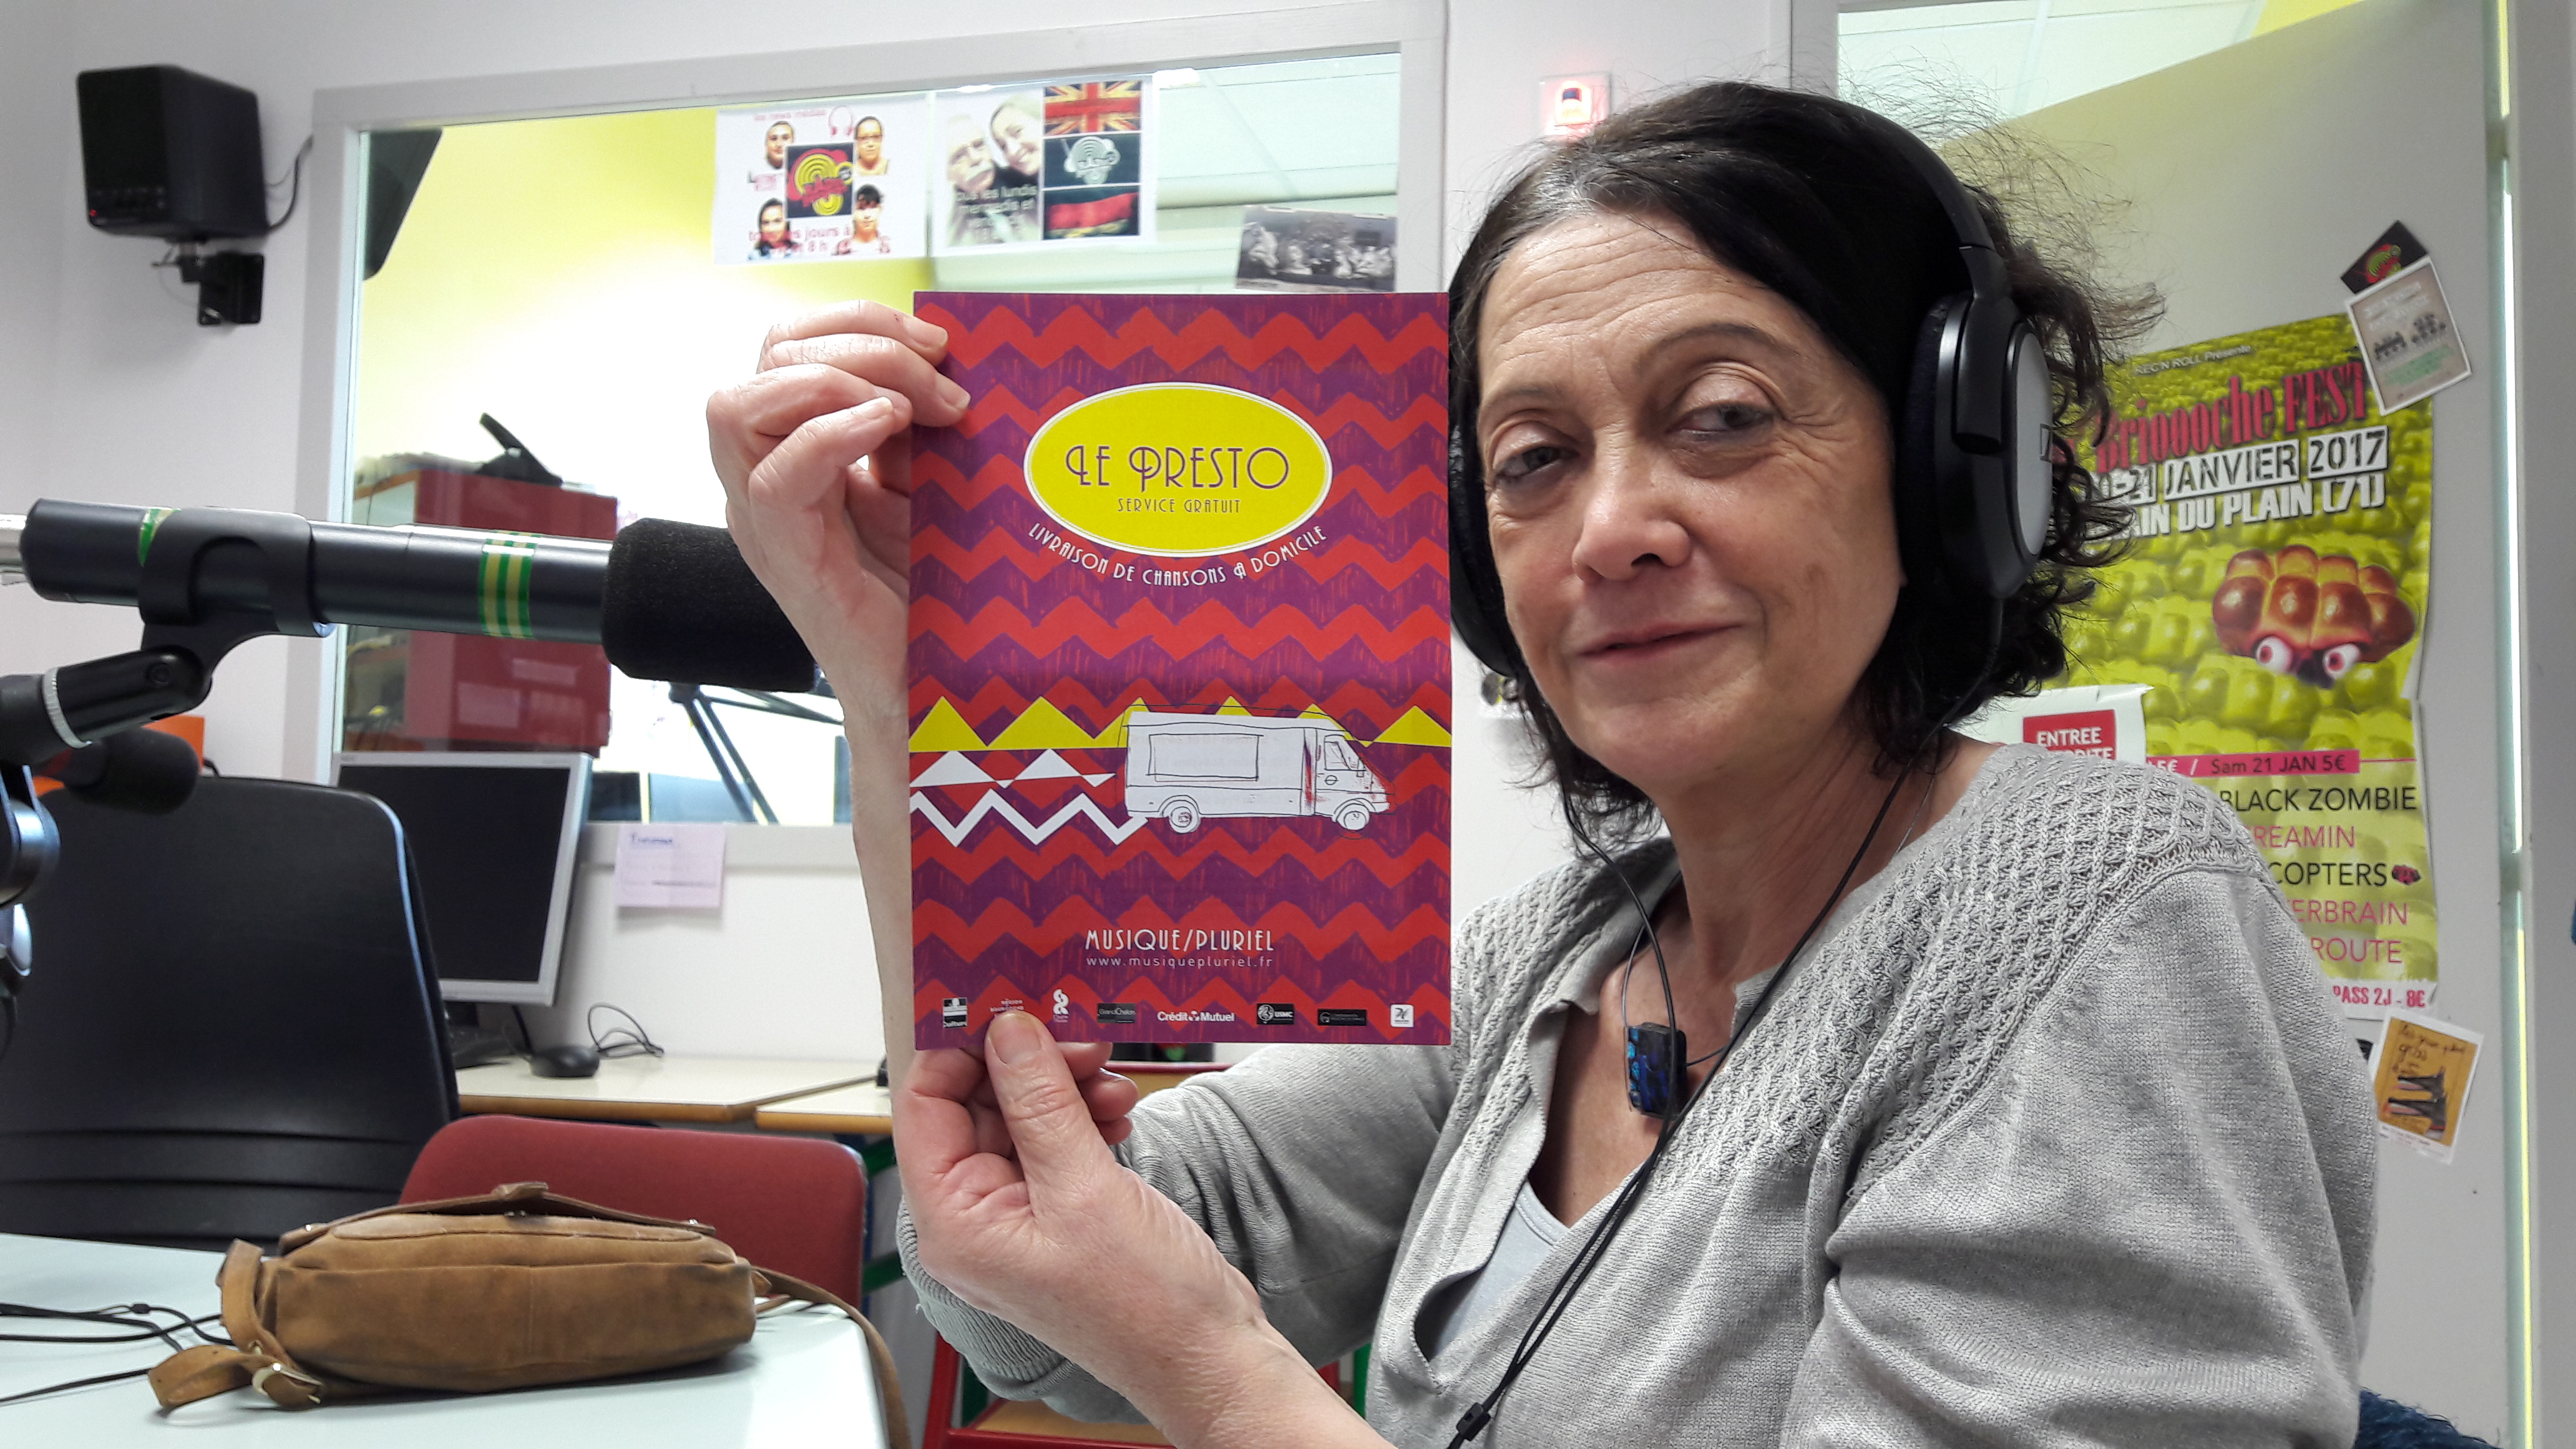 LE PRESTO
SERVICE GRATUIT
LIVRAISON DE CHANSONS A DOMICILE
MUSIQUE/PLURIEL
www.musiquepluriel.fr
Crédit Mutuel
REC'N ROLL Présente
Brioooche FEST
21 JANVIER 2017
DU PLAIN (71)
ENTREE
5€ / Sam 21 JAN 5€
BLACK ZOMBIE
REAMIN
COPTERS
ERBRAIN
ROUTE
PASS 2J - 8€
tous les lundis
jours à
8 h